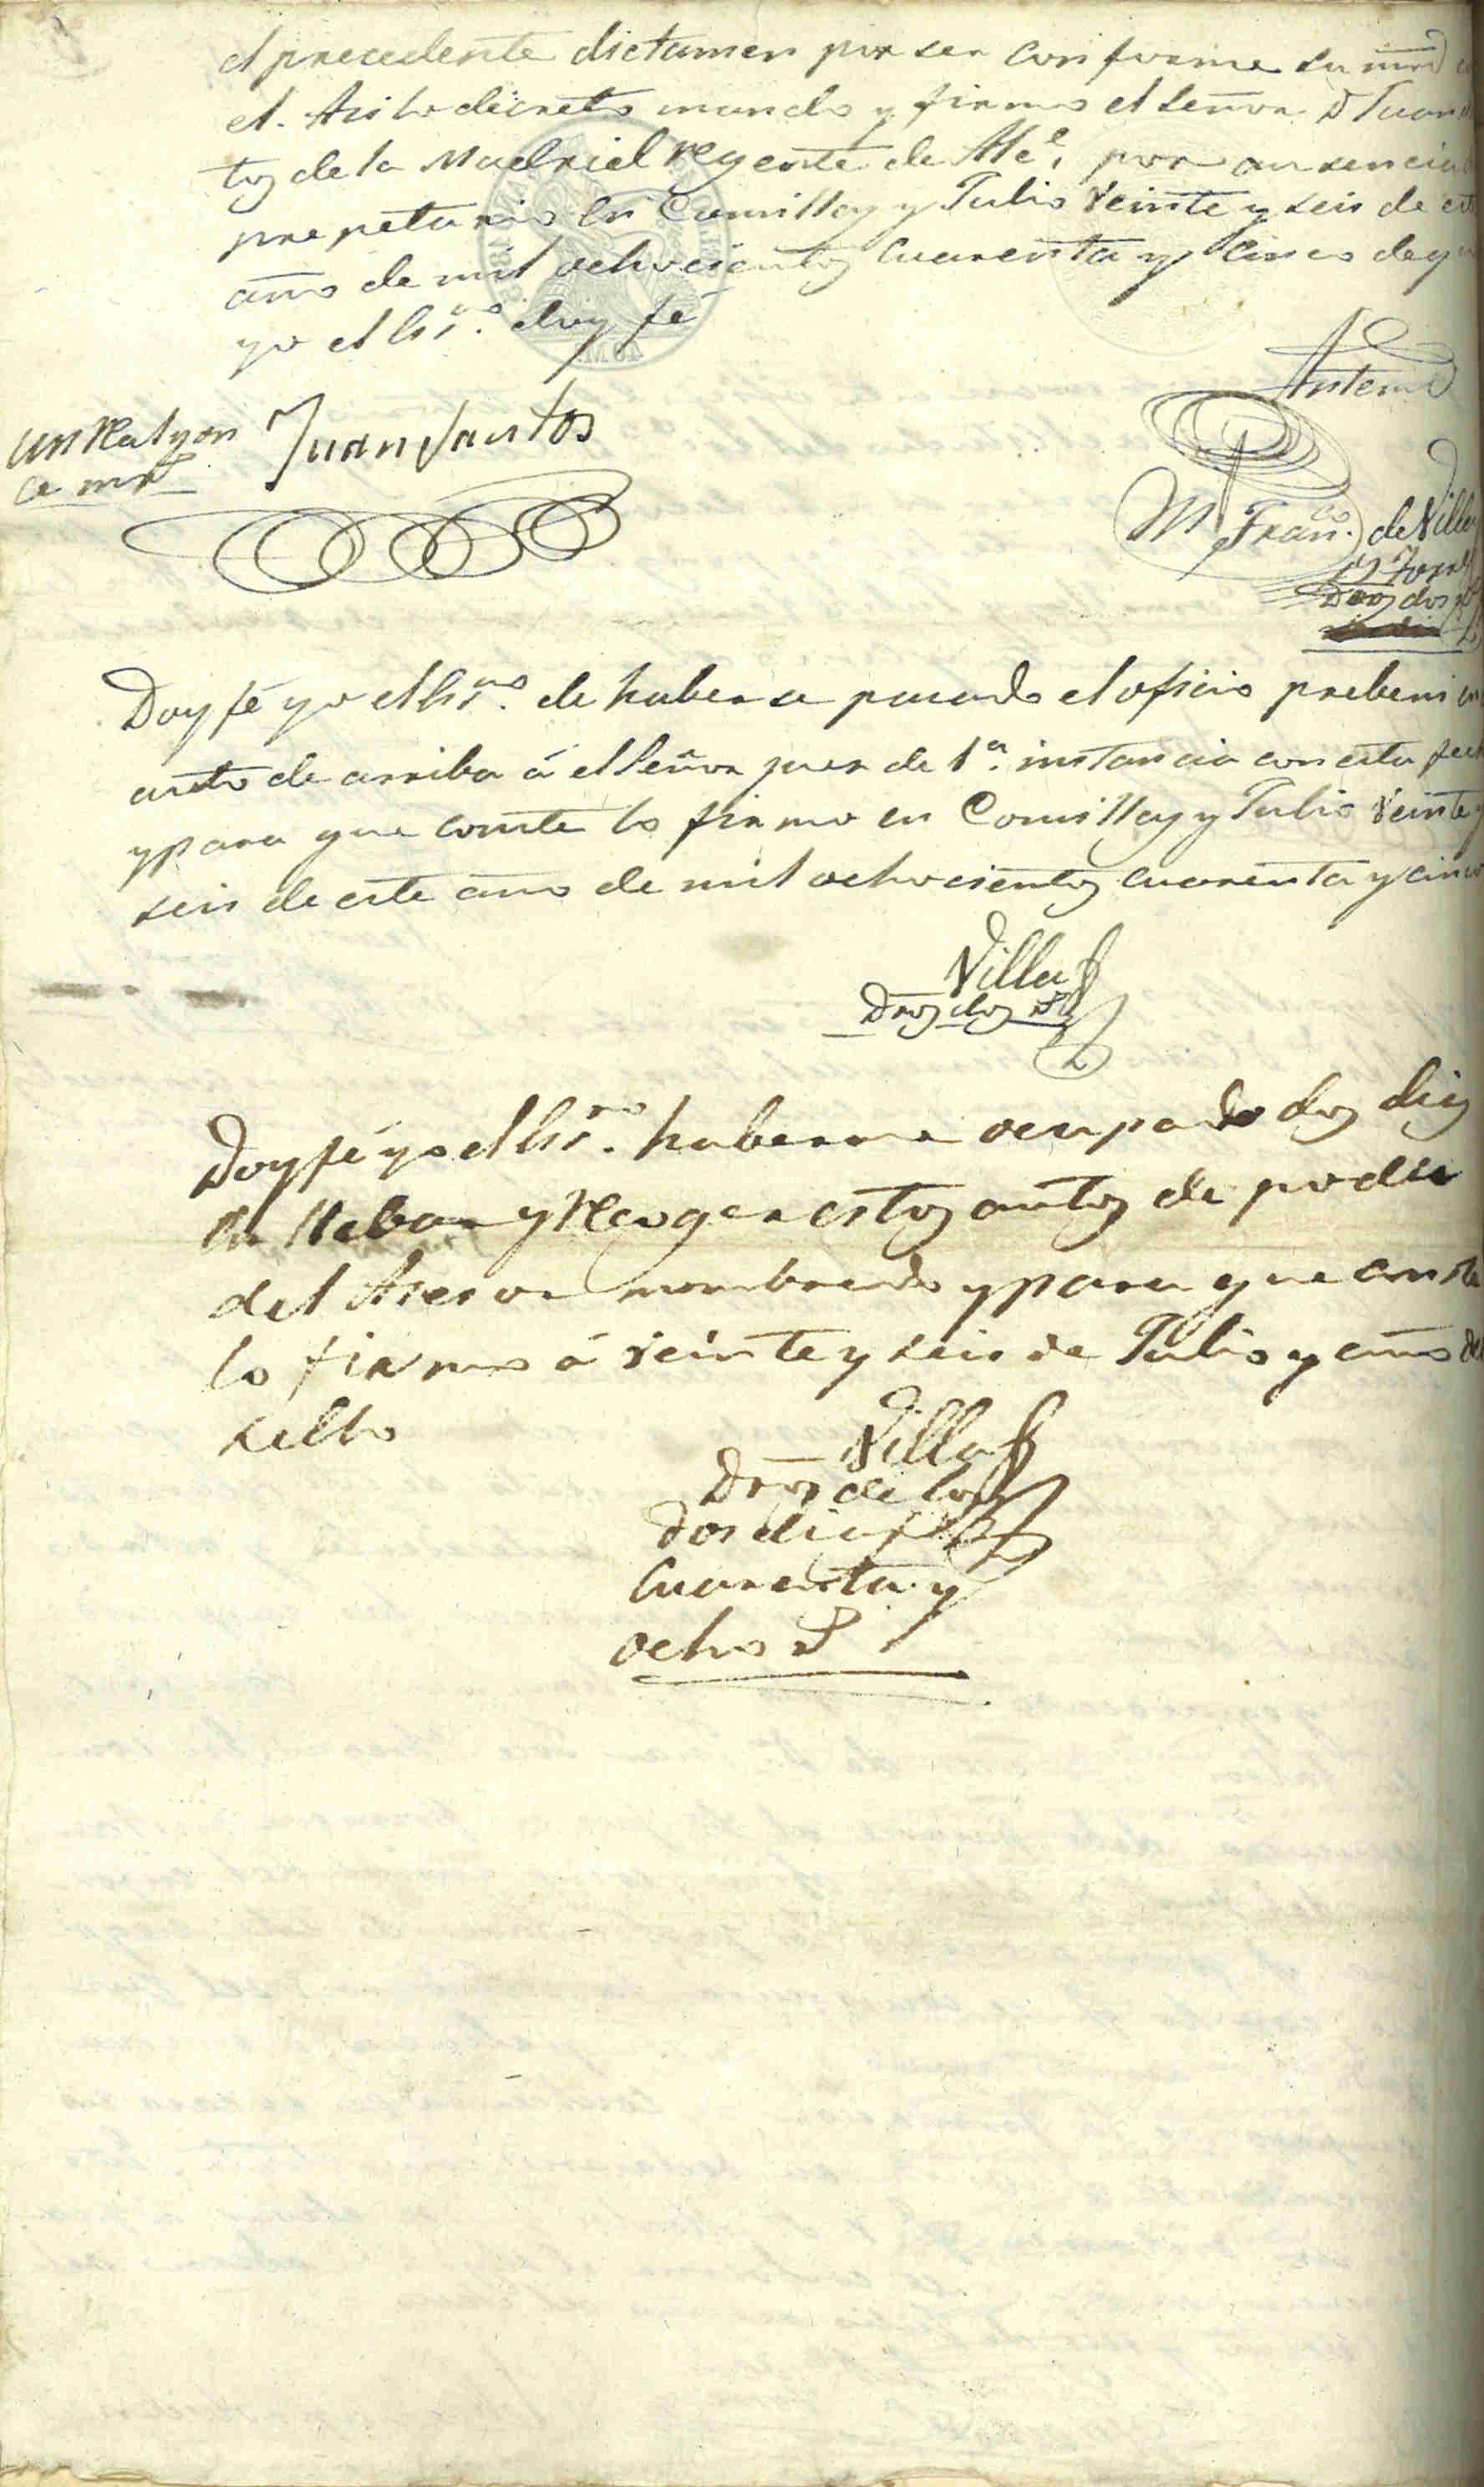 el precedente dictamen por ser conforme su mrd
el. Asi lo decreto mando y firmo el Señor D Juan
tos de la Madrid regente de Ale. por ausencia
propetario en Comillas y Julio Veinte y seis de es
año de mil ochocientos cuarenta y cinco de q
yo el Esno. doy fé
un Real y on
ce mrs
Juan Santos
Antemi
M Franco. de Villa
y Torre
Dros dos rs
Doy fé yo el Esno. de haberse pasado el oficio prebeni
auto de arriba á el Señor juez de 1a. instancia con esta fech
y para que conste lo firmo en Comillas y Julio Veinte y
seis de este año de mil ochocientos cuarenta y cinco
Villa
Dros dos rs
Doy fé yo el Esno. haberme ocupado dos dias
en llebar y Recoger estos autos de poder
del Asesor nombrado y para que conste
lo firmo á veinte y seis de Julio y año del
sello
Villa
Dros de los
dos dias
Cuarenta y
ocho rs